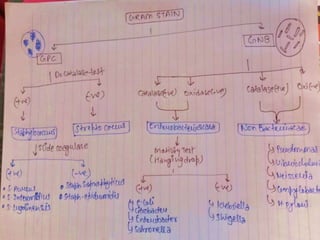 GRAM STAIN
GPC
GNB
Do Catalase test
(+ve)
(-ve)
Catalase(+ve)
Oxidase(-ve)
Catalase(+ve)
Oxi(+ve)
Staphylococcus
Streptococcus
Enterobacteriaceae
Non
Slide coagulase
Motility Test
(Hanging drop)
(+ve)
(-ve)
(+ve)
(-ve)
S. Aureus
S. Intermedius
S. Lugdunensis
Staph. Saprophyticus
Staph. epidermidis
E. Coli
Citrobacter
Enterobacter
Salmonella
Klebsiella
Shigella
Pseudomonas
Neisseria
Campylobacter
H. Pylori